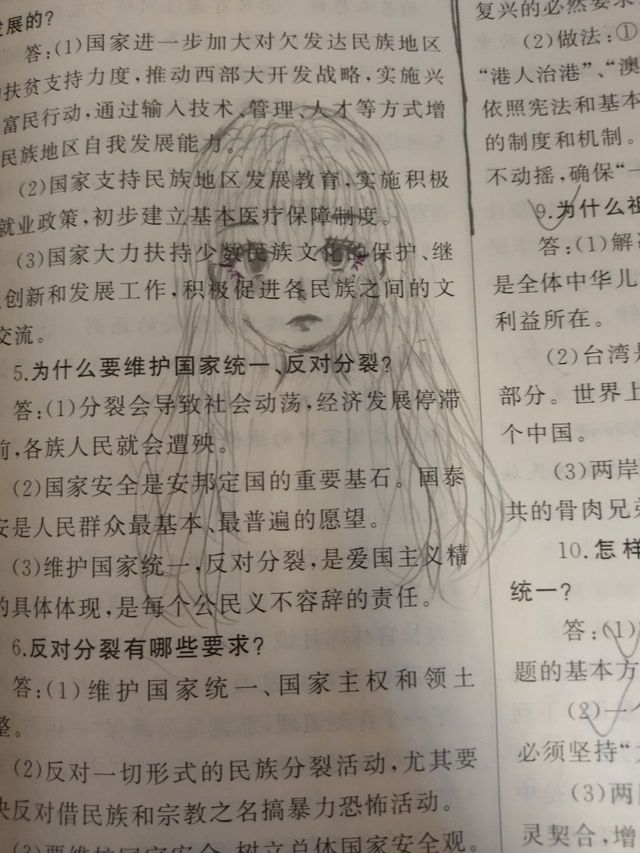 发展的?
答:(1)国家进一步加大对欠发达民族地区
扶贫支持力度，推动西部大开发战略，实施兴
富民行动，通过输入技术、管理、人才等方式增
民族地区自我发展能力。
(2)国家支持民族地区发展教育，实施积极
就业政策，初步建立基本医疗保障制度。
(3)国家大力扶持少数民族文化的保护、继
创新和发展工作，积极促进各民族之间的文
交流。
5.为什么要维护国家统一、反对分裂?
答:(1)分裂会导致社会动荡，经济发展停滞
前，各族人民就会遭殃。
(2)国家安全是安邦定国的重要基石。国泰
安是人民群众最基本、最普遍的愿望。
(3)维护国家统一，反对分裂，是爱国主义精
的具体体现，是每个公民义不容辞的责任。
6.反对分裂有哪些要求?
答:(1)维护国家统一、国家主权和领土
整。
(2)反对一切形式的民族分裂活动，尤其要
决反对借民族和宗教之名搞暴力恐怖活动。
(3)要维护国家安全，树立总体国家安全观。
复兴的必然要求
(2)做法:①
“港人治港”、“澳
依照宪法和基本
的制度和机制。
不动摇，确保“一
9.为什么祖
答:(1)解
是全体中华儿
利益所在。
(2)台湾是
部分。世界上
个中国。
(3)两岸
共的骨肉兄弟
10.怎样
统一?
答:(1)
题的基本方
(2)一个
必须坚持“
(3)两
灵契合，增